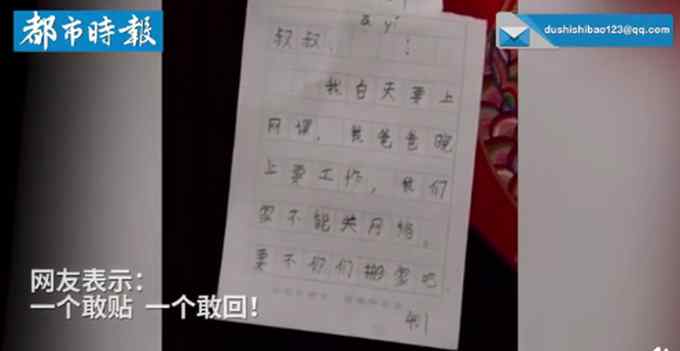 都市時報
dushishibao123@qq.com
ā yí
叔叔、 ！
我白天要上
网课，我爸爸晚
上要工作，我们
家不能关网络。
要不你们搬家吧
网友表示：
一个敢贴 一个敢回！